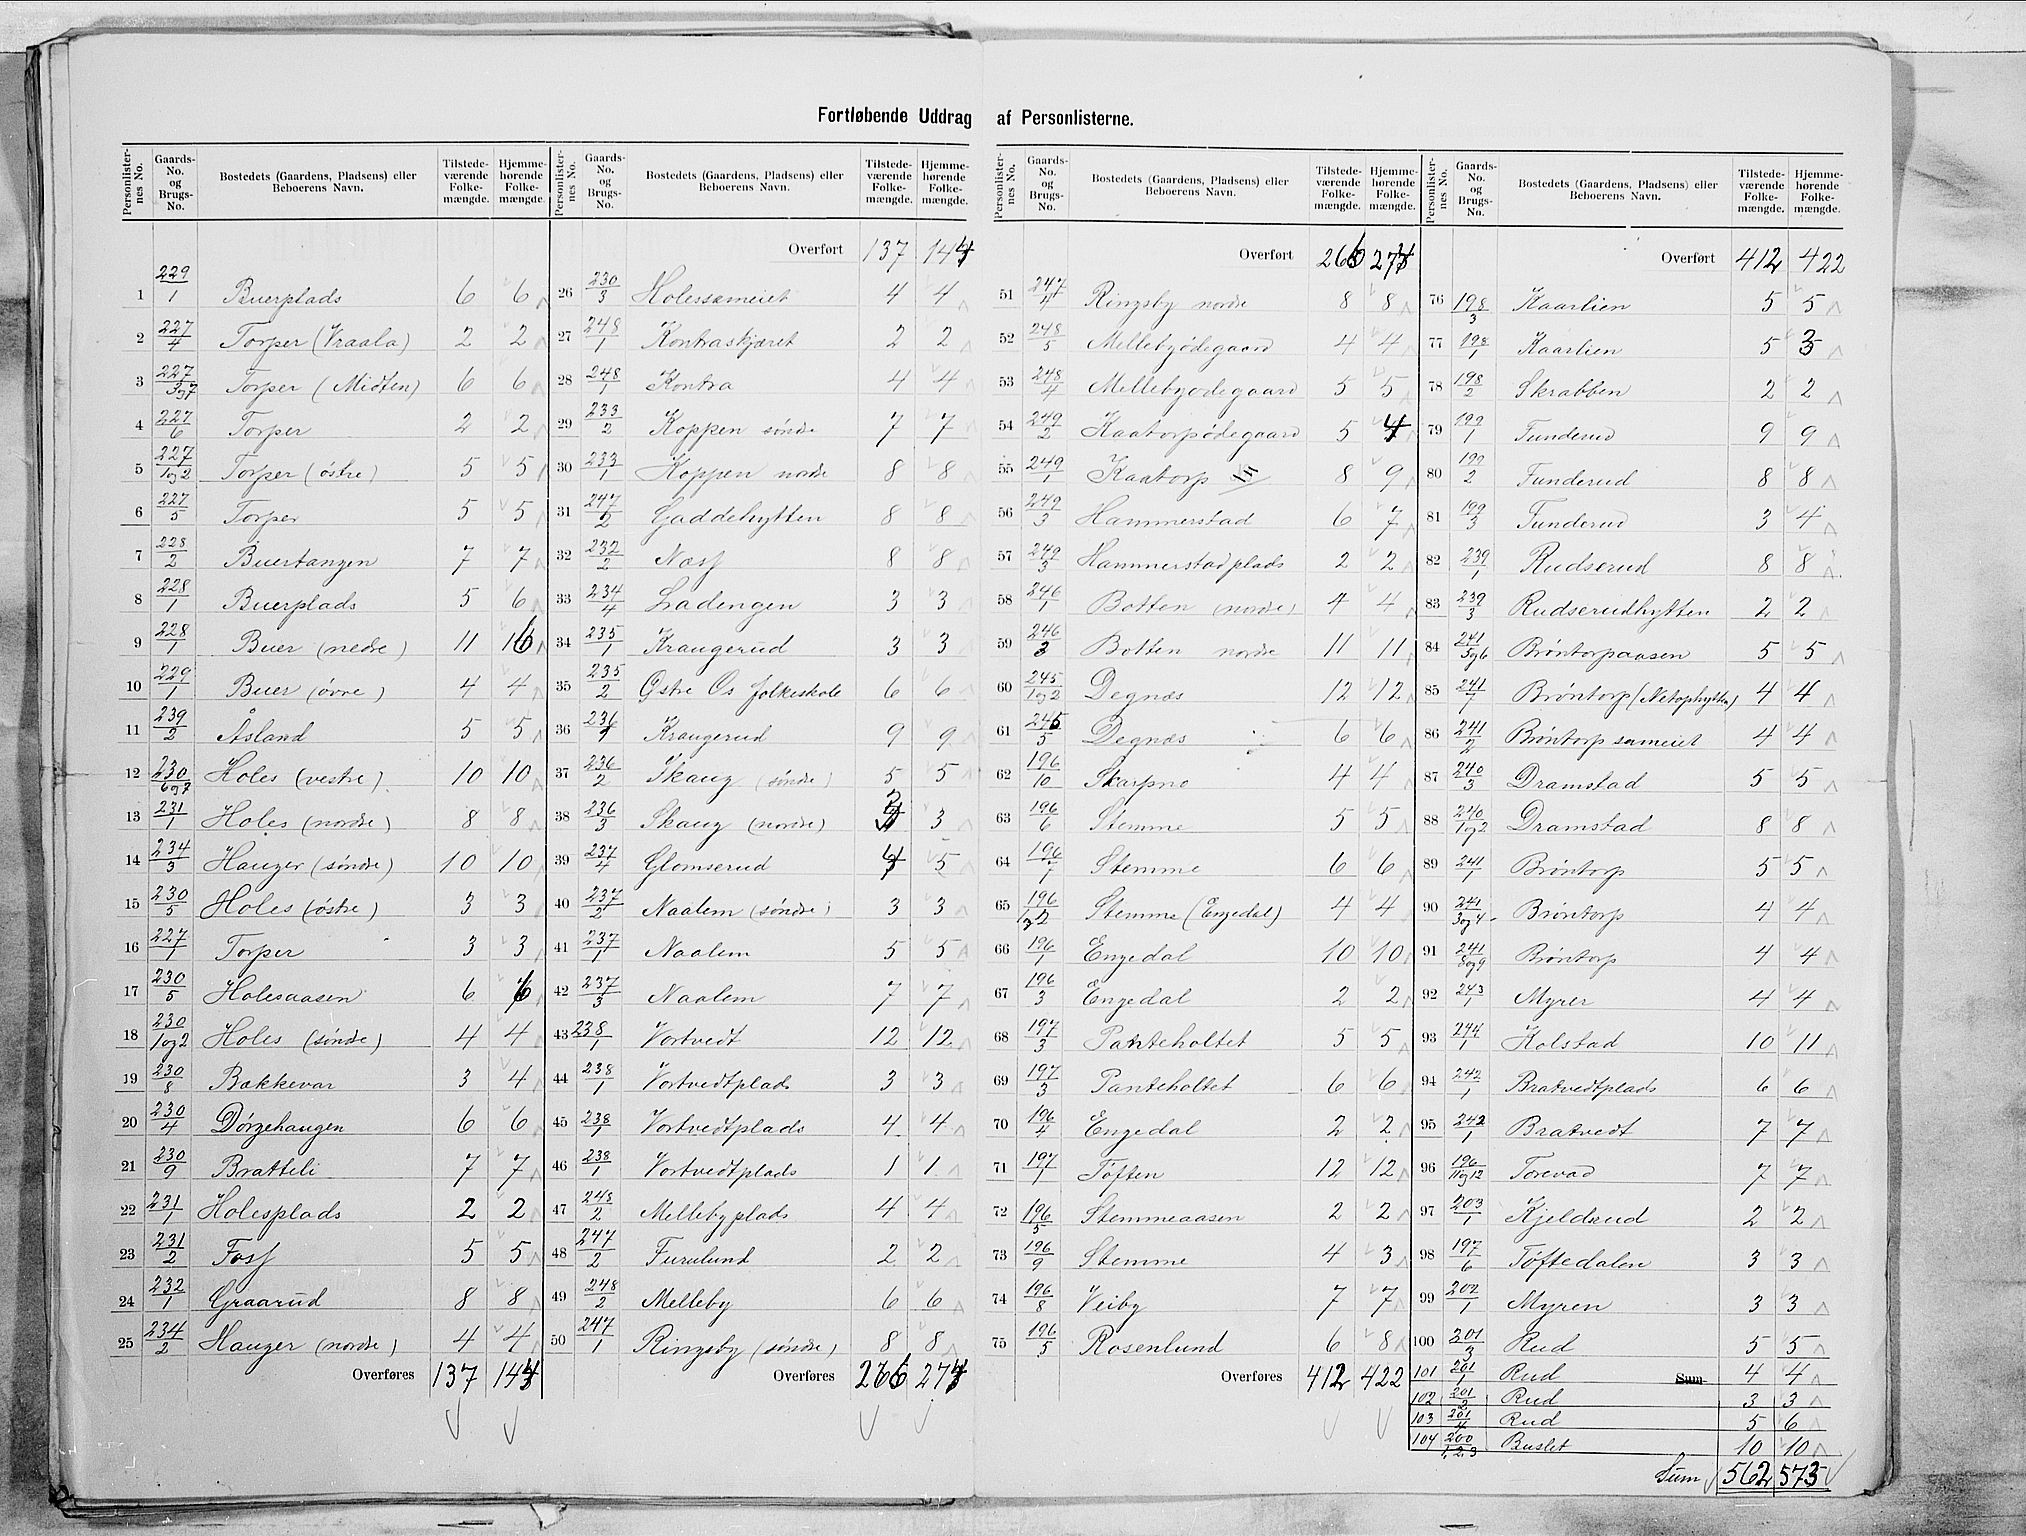 Fortløbende Uddrag af Personlisterne.
Personlister-nes No. | Gaards-No. og Brugs-No. | Bostedets (Gaardens, Pladsens) eller Beboerens Navn. | Tilstede-værende Folke-mængde. | Hjemme-hørende Folke-mængde.
1 229/1 Buerplads 6 6
2 227/4 Torper (Vraala) 2 2
3 227/3og7 Torper (Midten) 6 6
4 227/6 Torper 2 2
5 227/1og2 Torper (østre) 5 5
6 227/5 Torper 5 5
7 228/2 Buertangen 7 7
8 228/1 Buerplads 5 6
9 228/1 Buer (nedre) 11 16
10 229/1 Buer (øvre) 4 4
11 239/2 Åsland 5 5
12 230/6og7 Holes (vestre) 10 10
13 231/1 Holes (nordre) 8 8
14 234/3 Hauger (søndre) 10 10
15 230/5 Holes (østre) 3 3
16 227/1 Torper 3 3
17 230/5 Holesaasen 6 6
18 230/1og2 Holes (søndre) 4 4
19 230/8 Bakkevar 3 4
20 230/4 Dørgehaugen 6 6
21 230/9 Bratteli 7 7
22 231/1 Holesplads 2 2
23 231/2 Foss 5 5
24 232/1 Graarud 8 8
25 234/2 Hauger (nordre) 4 4
Overføres 137 143
Personlister-nes No. | Gaards-No. og Brugs-No. | Bostedets (Gaardens, Pladsens) eller Beboerens Navn. | Tilstede-værende Folke-mængde. | Hjemme-hørende Folke-mængde.
Overført 137 144
26 230/3 Holessameiet 4 4
27 248/1 Kontraskjæret 2 2
28 248/1 Kontra 4 4
29 233/2 Koppen søndre 7 7
30 233/1 Koppen nordre 8 8
31 247/2 Gaddehytten 8 8
32 232/2 Næss 8 8
33 234/4 Ladengen 3 3
34 235/1 Kraugerud 3 3
35 235/2 Østre Os folkeskole 6 6
36 236/1 Kraugerud 9 9
37 236/2 Skaug (søndre) 5 5
38 236/3 Skaug (nordre) 3
39 237/4 Glomserud 5
40 237/2 Naalem (søndre) 3 3
41 237/1 Naalem 5 5
42 237/3 Naalem 7 7
43 238/1 Vortvedt 12 12
44 238/1 Vortvedtplads 3 3
45 238/1 Vortvedtplads 4 4
46 238/1 Vortvedtplads 1 1
47 248/2 Mellebyplads 4 4
48 247/2 Furulund 2 2
49 248/2 Melleby 6 6
50 247/1 Ringsby (søndre) 8 8
Overføres 266 27
Personlister-nes No. | Gaards-No. og Brugs-No. | Bostedets (Gaardens, Pladsens) eller Beboerens Navn. | Tilstede-værende Folke-mængde. | Hjemme-hørende Folke-mængde.
Overført 266 27
51 247/4 Ringsby nordre 8 8
52 248/5 Mellebyødegaard 4 4
53 248/4 Mellebyødegaard 5 5
54 249/2 Kaatorpødegaard 5 4
55 249/1 Kaatorp 8 9
56 249/3 Hammerstad 6 7
57 249/3 Hammerstadplads 2 2
58 246/1 Botten (nordre) 4 4
59 246/3 Botten nordre 11 11
60 245/1og2 Degnæs 12 12
61 245/5 Degnæs 6 6
62 196/10 Skarpno 4 4
63 196/6 Stemme 5 5
64 196/7 Stemme 6 6
65 196/1og2 Stemme (Engedal) 4 4
66 196/1 Engedal 10 10
67 196/3 Engedal 2 2
68 197/3 Panteholtet 5 5
69 197/3 Panteholtet 6 6
70 196/4 Engedal 2 2
71 197/1 Tøften 12 12
72 196/5 Stemmeaasen 2 2
73 196/9 Stemme 4 3
74 196/8 Veiby 7 7
75 196/5 Rosenlund 6 8
Overføres 412 422
Personlister-nes No. | Gaards-No. og Brugs-No. | Bostedets (Gaardens, Pladsens) eller Beboerens Navn. | Tilstede-værende Folke-mængde. | Hjemme-hørende Folke-mængde.
Overført 412 422
76 198/3 Kaarlien 5 5
77 198/1 Kaarlien 5 3
78 198/2 Skrabben 2 2
79 199/1 Funderud 9 9
80 199/2 Funderud 8 8
81 199/3 Funderud 3 4
82 239/1 Rudserud 8 8
83 239/3 Rudserudhytten 2 2
84 241/3og6 Brøntorpaasen 5 5
85 241/7 Brøntorp (Netophytten) 4 4
86 241/2 Brøntorp sameiet 4 4
87 240/3 Dramstad 5 5
88 240/1og2 Dramstad 8 8
89 241/1 Brøntorp 5 5
90 241/3og4 Brøntorp 4 4
91 241/8og9 Brøntorp 4 4
92 243/1 Myrer 4 4
93 244/1 Kolstad 10 11
94 242/1 Bratvedtplads 6 6
95 242/1 Bratvedt 7 7
96 196/11og12 Torevad 7 7
97 203/1 Kjeldrud 2 2
98 197/6 Tøftedalen 3 3
99 202/1 Myren 3 3
100 201/3 Rud 5 5
101 201/1 Rud Sum 4 4
102 201/2 Rud 3 3
103 201/4 Rud 5 6
104 200/1,2,3 Buslet 10 10
Sum 562 573